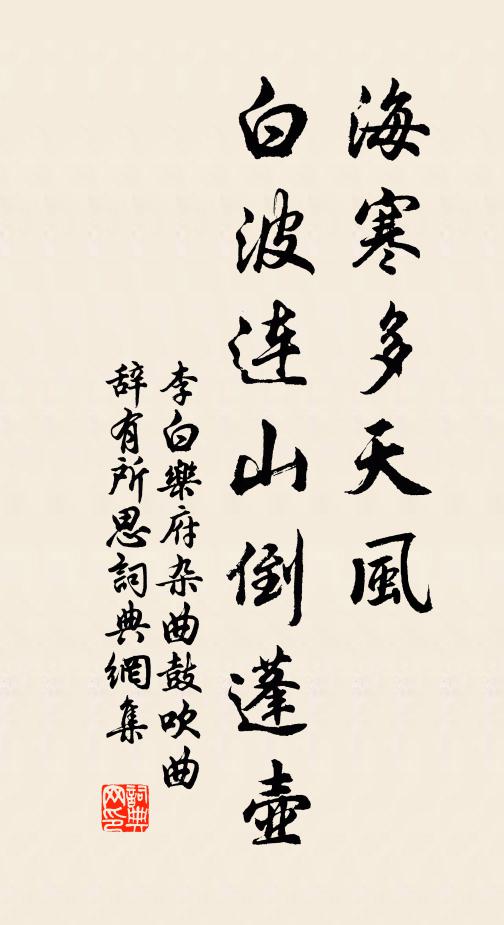 海寒多天風
白波连山倒蓬壺
李白樂府杂曲鼓吹曲
辞有所思詞典網集
詞典网印